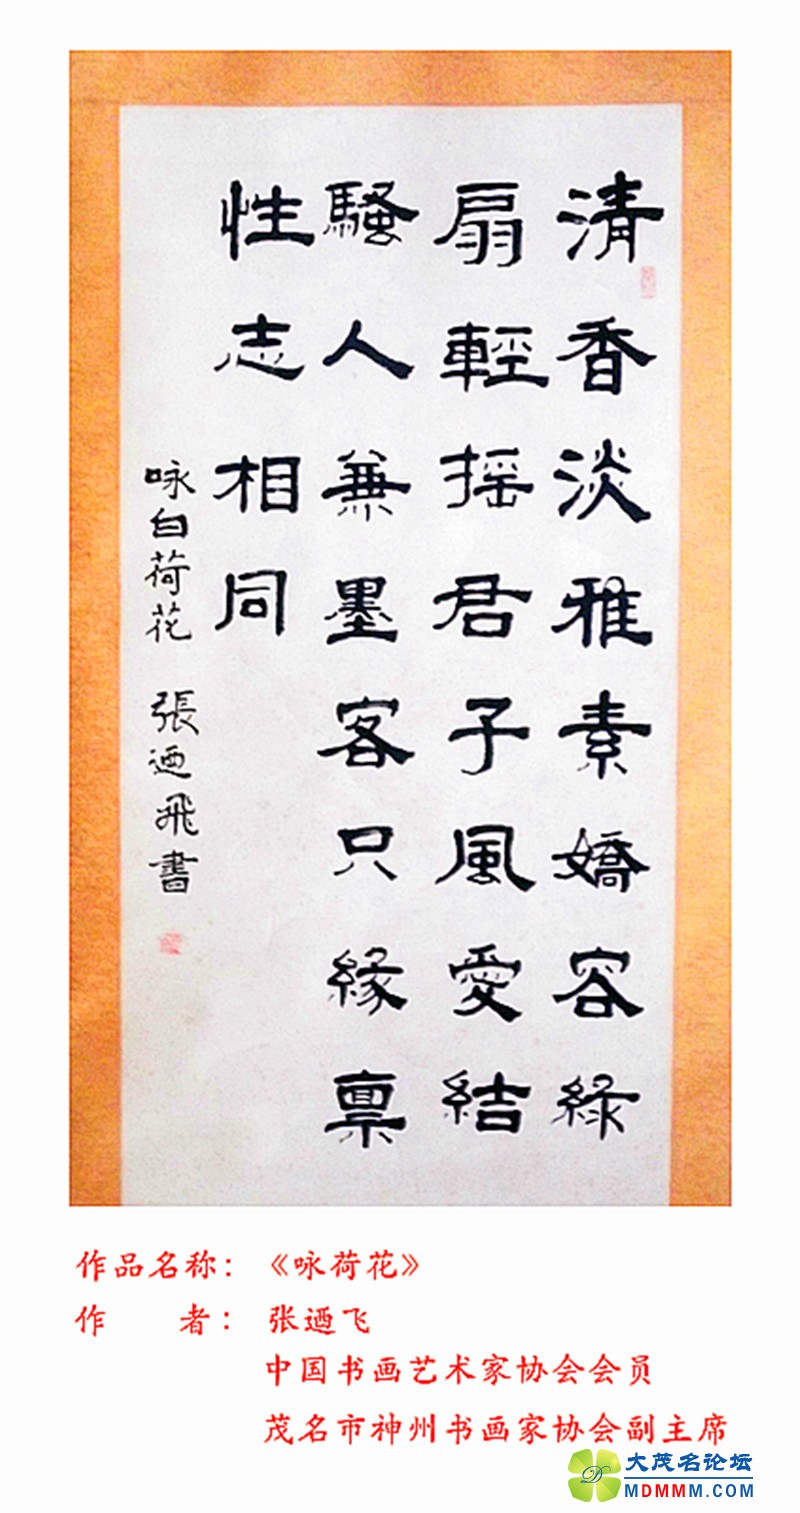 清香淡雅素嬌容綠
扇輕摇君子風愛結
騷人兼墨客只緣禀
性志相同
咏白荷花 張迺飛書
作品名称：《咏荷花》
作 者：张迺飞
中国书画艺术家协会会员
茂名市神州书画家协会副主席
大茂名论坛
MDMMM.COM